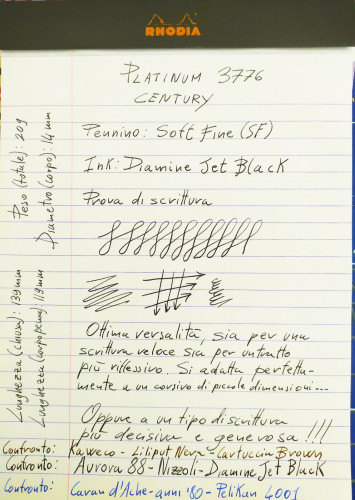 RHODIA
PLATINUM 3776
CENTURY
Pennino: Soft Fine (SF)
Ink: Diamine Jet Black
Prova di scrittura
Ottima versalità, sia per una
scrittura veloce sia per un tratto
più riflessivo. Si adatta perfetta-
mente a un corsivo di piccole dimensioni...
Oppure a un tipo di scrittura
più decisiva e generosa !!!
Confronto: Kaweco - Liliput Nera - Cartuccia Brown
Confronto: Aurora 88 - Nizzoli - Diamine Jet Black
Confronto: Caran d'Ache - anni '80 - Pelikan 4001
Peso (totale): 20g
Diametro (corpo): 14mm
Lunghezza (chiusa): 139mm
Lunghezza (corpo penna): 119mm